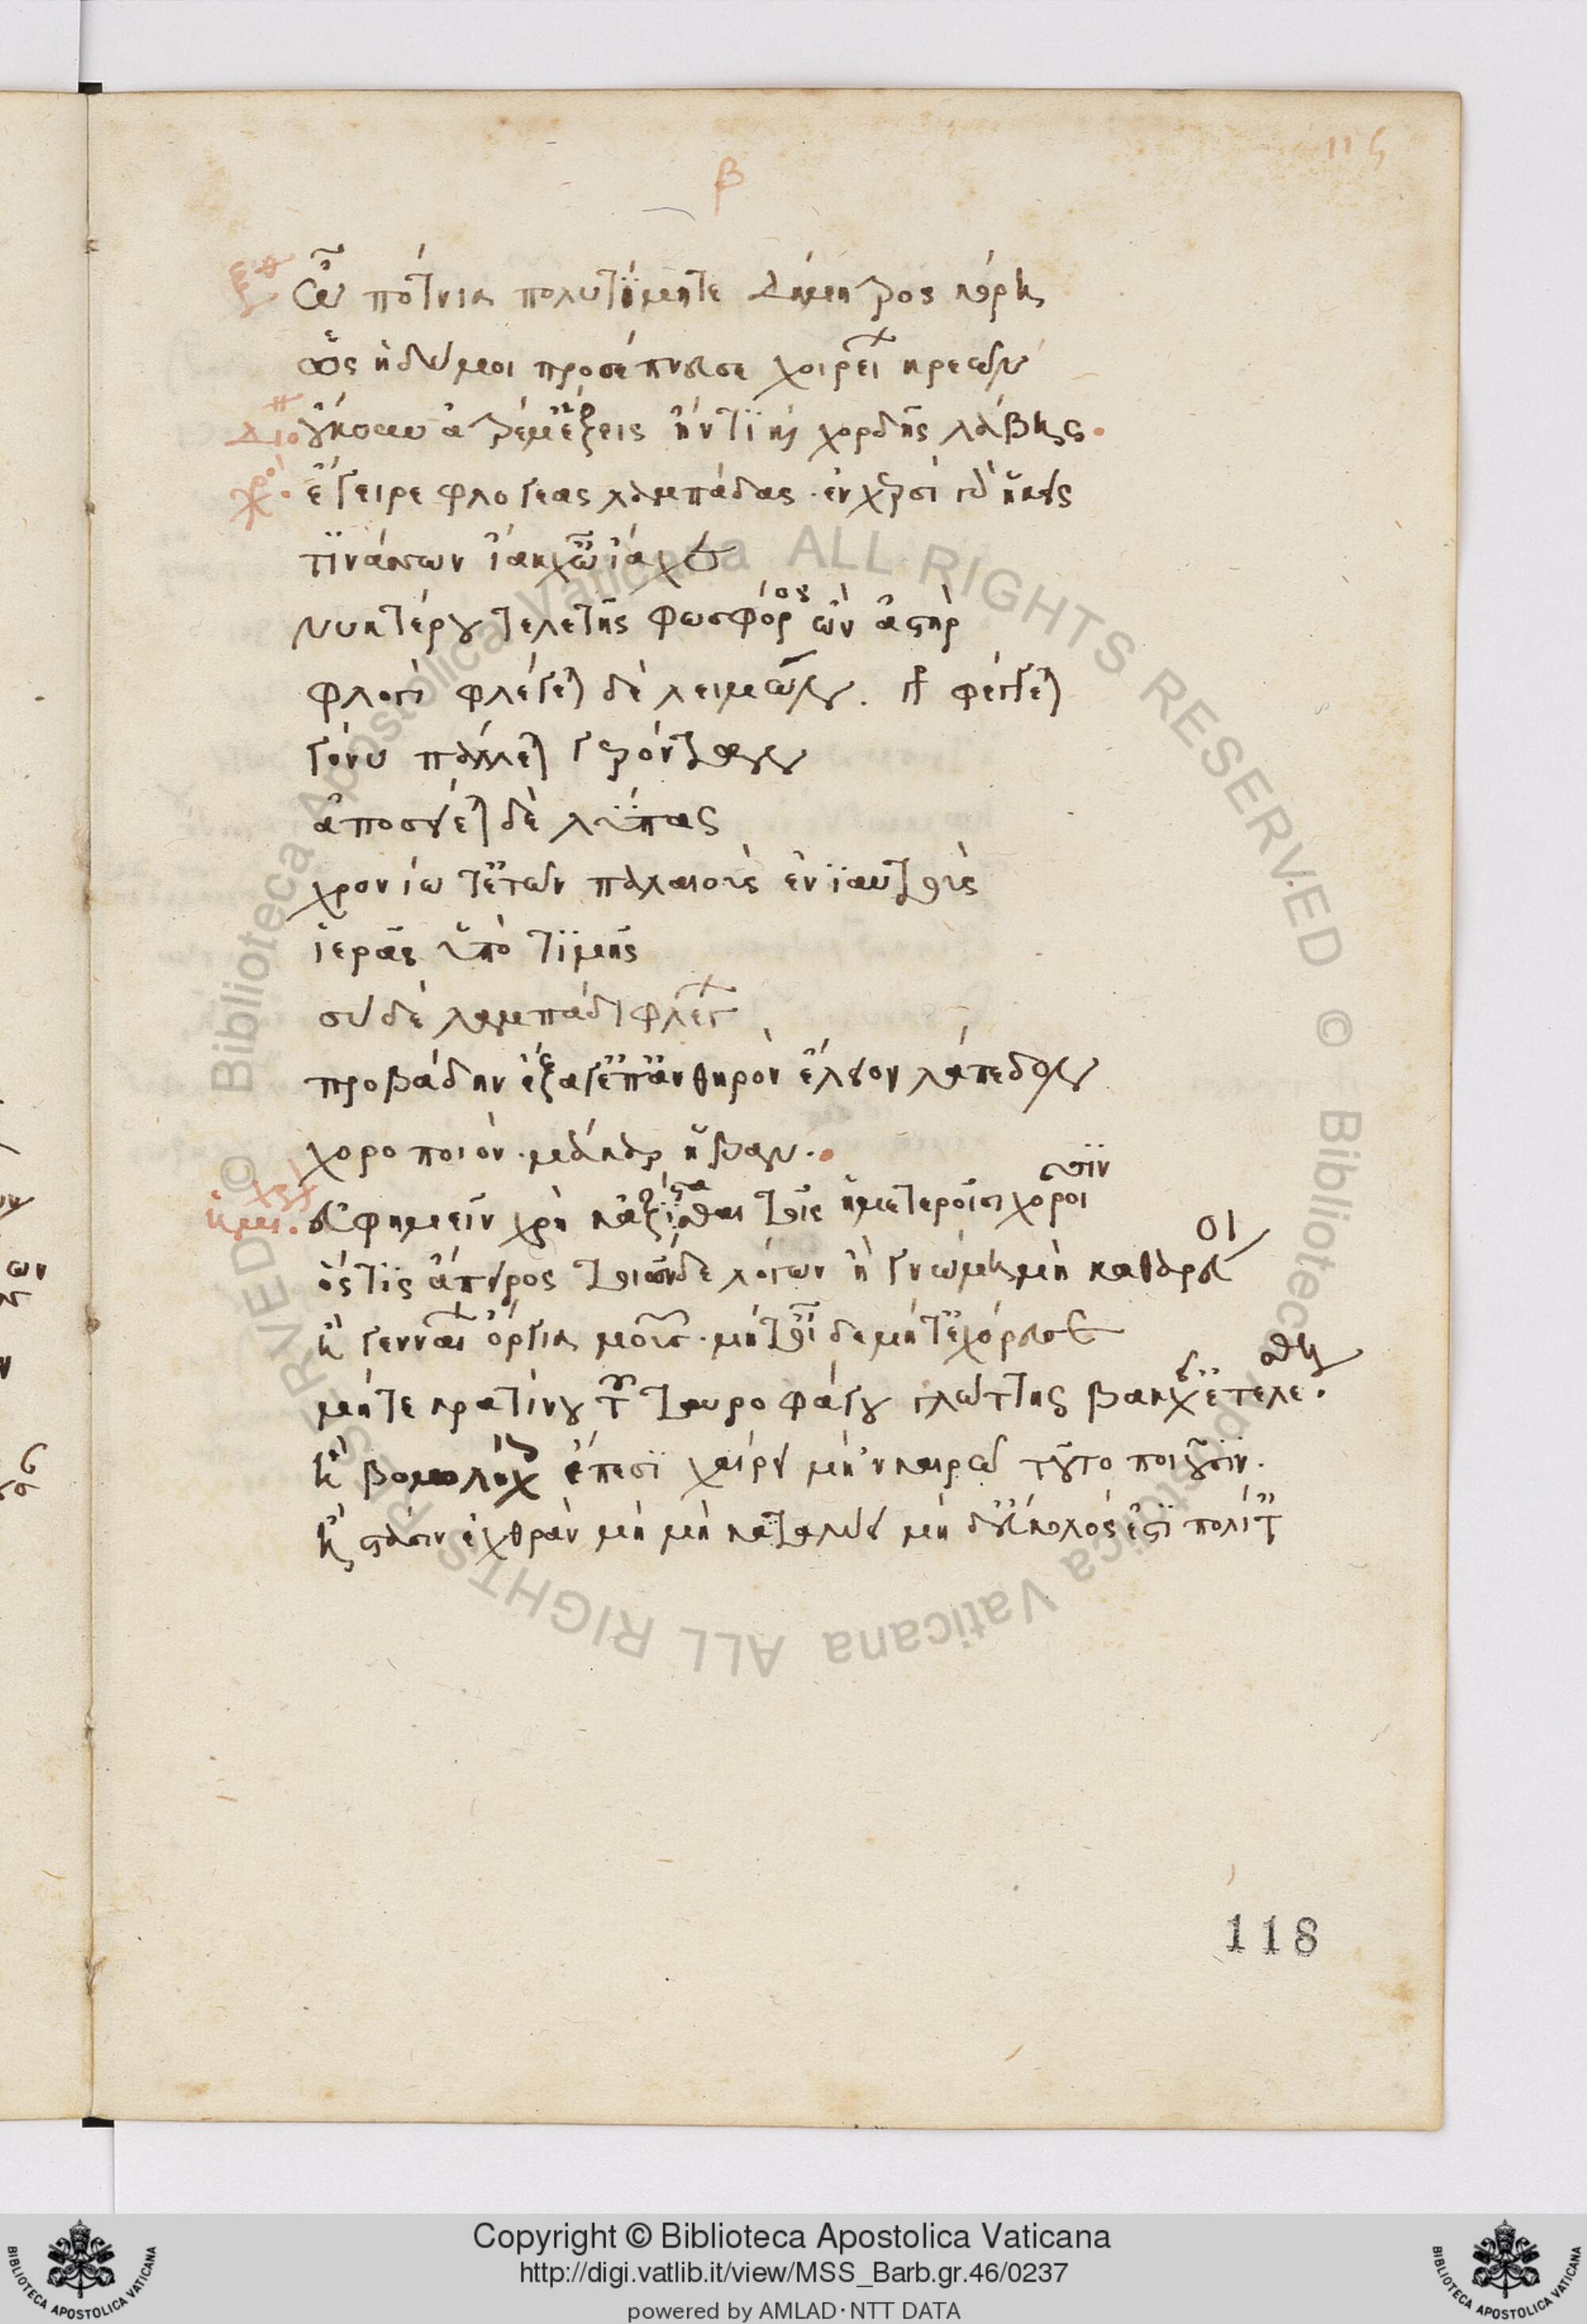 β
116
Ξα Ὦ πότνια πολυτίμητε Δήμητρος κόρη
ὡς ἡδύ μοι προσέπνευσε χοιρείων κρεῶν
Διο οὔκουν ἀτρέμ' ἕξεις ἤν τι καὶ χορδῆς λάβῃς.
Χορ. ἔγειρε φλογέας λαμπάδας. ἐν χερσὶ γὰρ ἥκεις
τινάσσων ἴακχ' ὦ ἴακχε
νυκτέρου τελετῆς φωσφόρος ὢν ἀστὴρ
φλογὶ φλέγεται δὲ λειμών. καὶ φέγγεται
γόνυ πάλλεται γερόντων
ἀποσείεται δὲ λύπας
χρονίω τ' ἐτῶν παλαιοὺς ἐνιαυτοὺς
ἱερᾶς ὑπὸ τιμῆς
σὺ δὲ λαμπάδι φλέγων
προβάδην ἔξαγ' ἐπ' ἀνθηρὸν ἕλειον δάπεδον
χοροποιόν. μάκαρ ἥβαν.
ἡμι. εὐφημεῖν χρὴ κἀξίστασθαι τοῖς ἡμετέροισι χοροῖσιν
ὅστις ἄπειρος τοιῶνδε λόγων ἢ γνώμῃ μὴ καθαρεύοι
ἢ γενναίων ὄργια μουσῶν. μήτ' εἶδε μήτ' ἐχόρευσε
μήτε κρατίνου τοῦ ταυροφάγου γλώττης βακχεῖ' ἐτελέσθη.
ἢ βωμολόχοις ἔπεσι χαίρει μὴ 'ν καιρῷ τοῦτο ποιοῦσιν.
ἢ στάσιν ἐχθρὰν μὴ μὴ καταλύει μὴ δ' εὔκολός ἐστι πολίταις
118
Copyright © Biblioteca Apostolica Vaticana
http://digi.vatlib.it/view/MSS_Barb.gr.46/0237
powered by AMLAD·NTT DATA